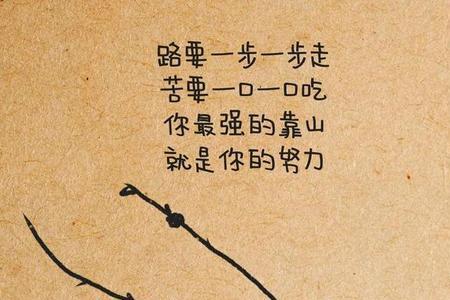 路要一步一步走
苦要一口一口吃
你最强的靠山
就是你的努力